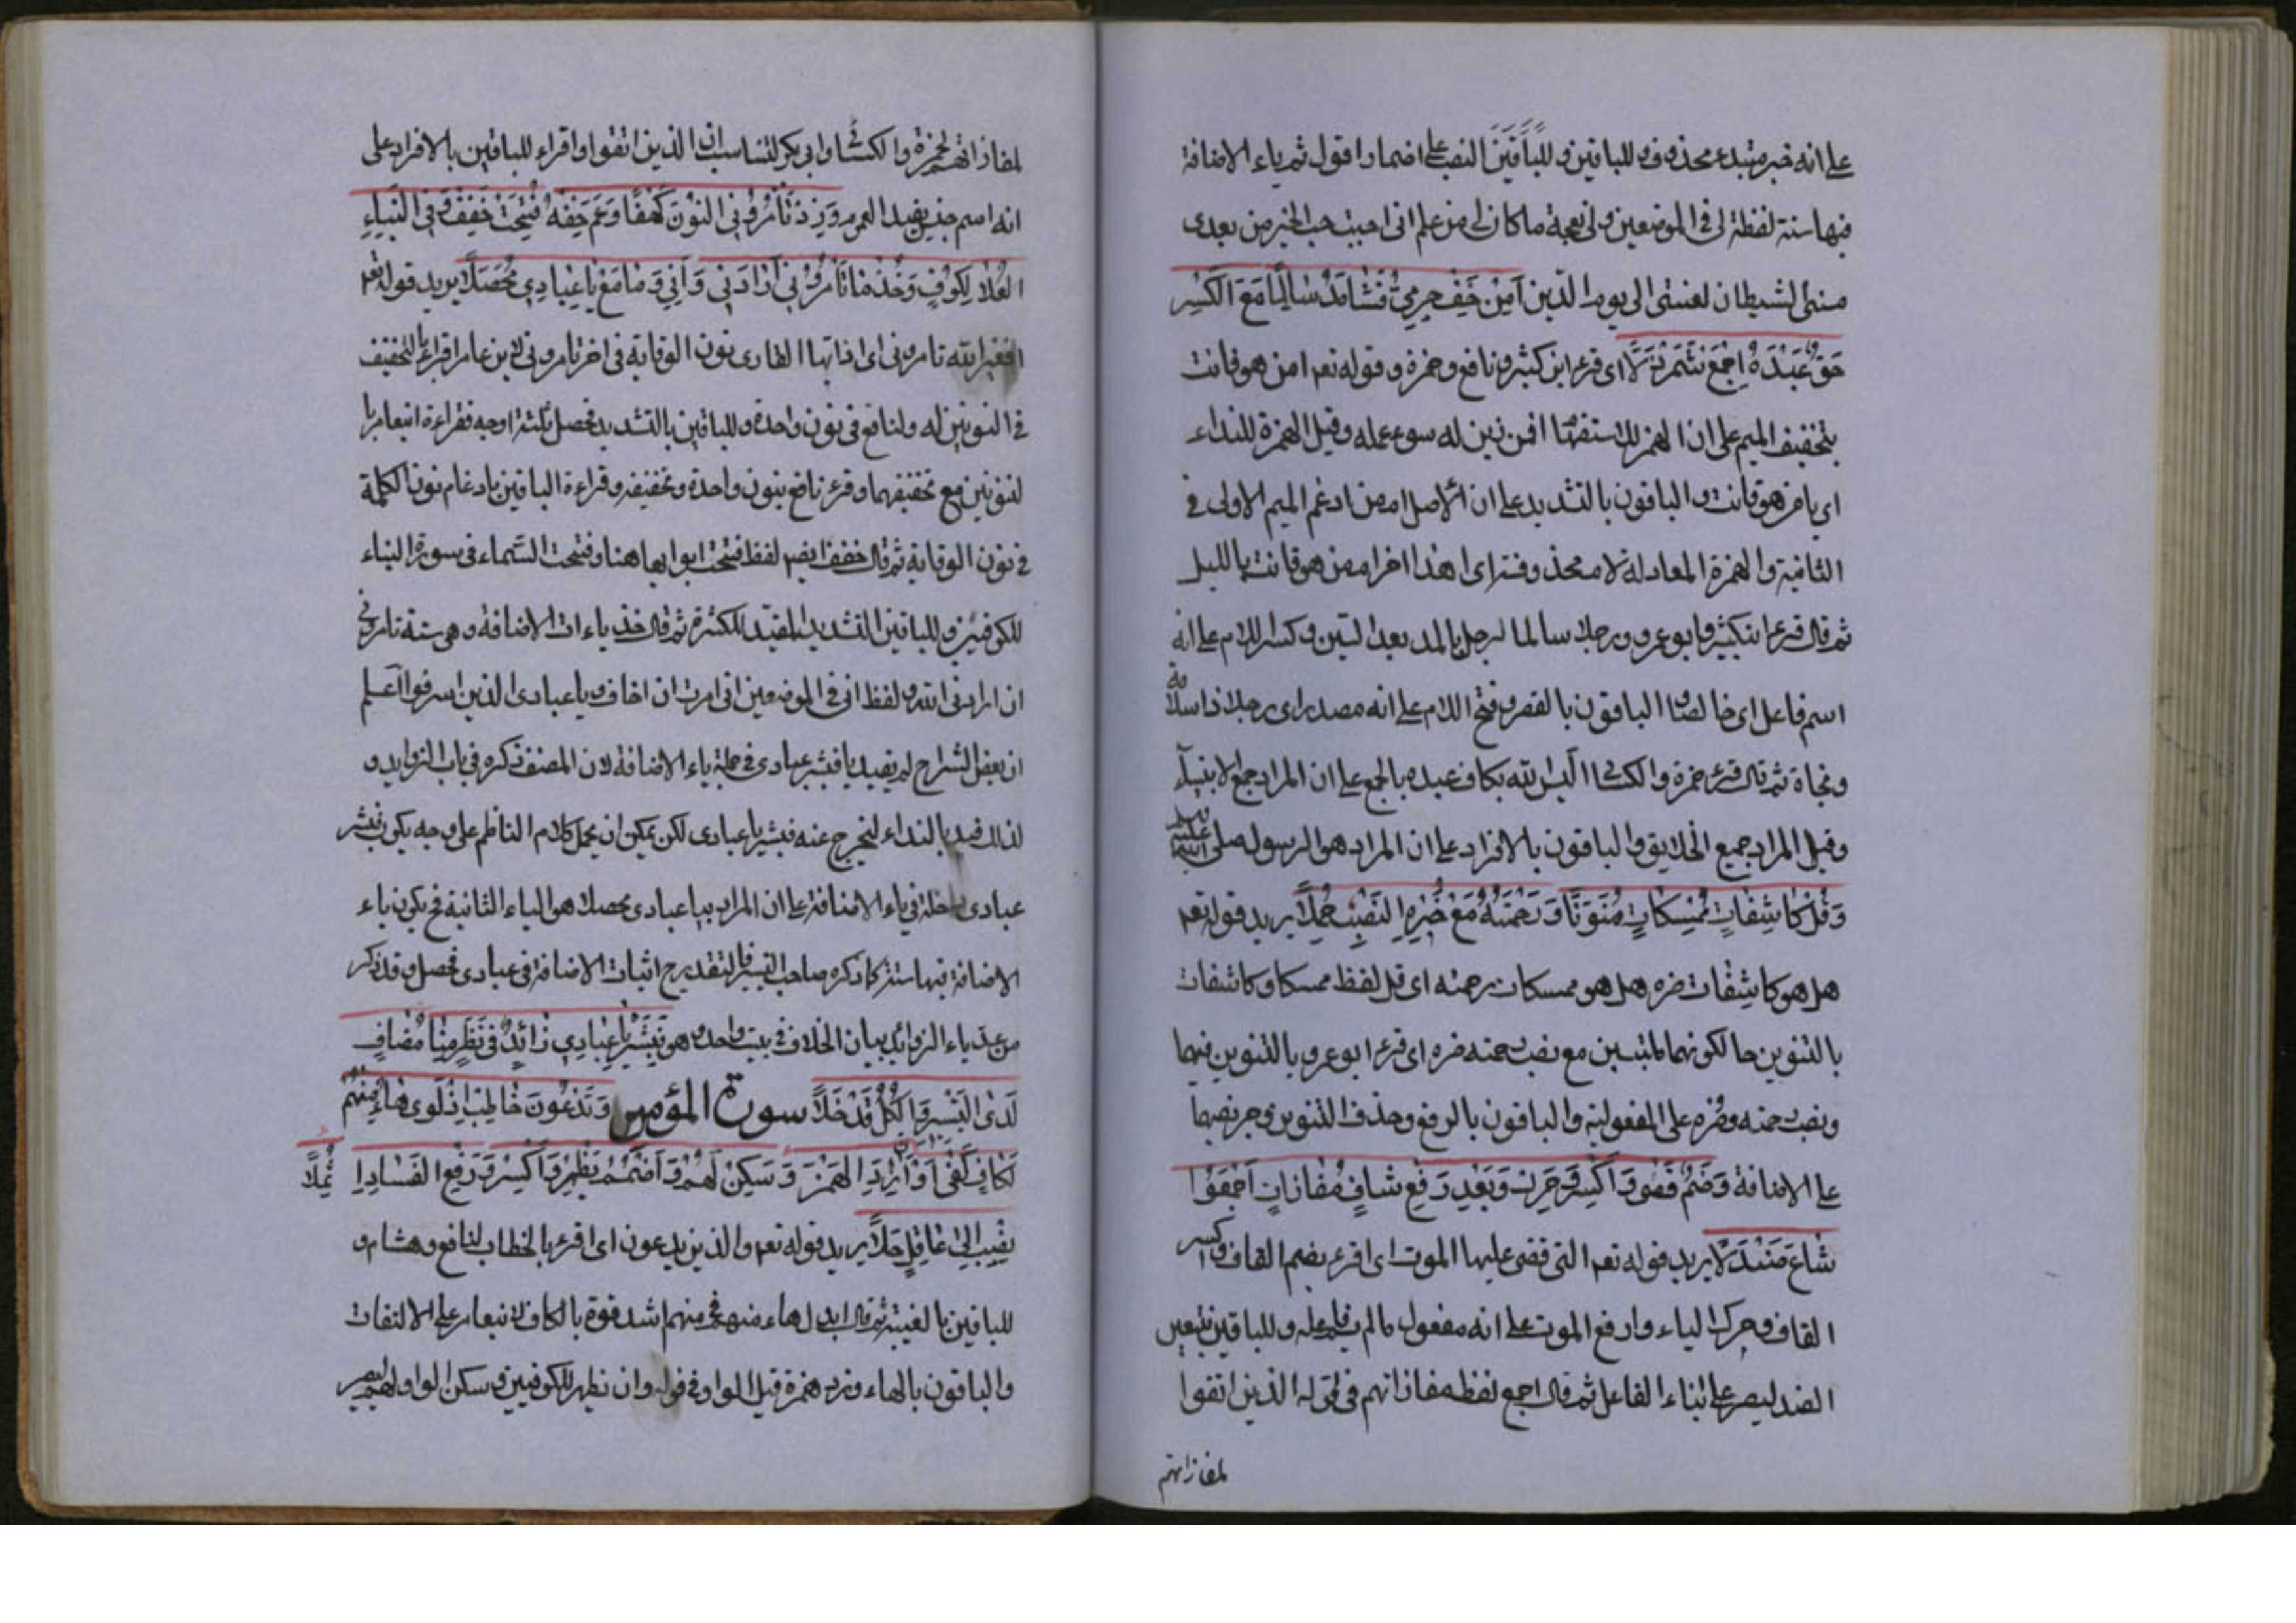 على انه خبر مبتدء محذوف و للباقين و للباقين النصب على اضمار اقول ثم ياء الاضافة
فيها ستة لفظة لى فى الموضعين ولى نعجة ما كان لى من علم انى احببت حب الخير من بعدى
مسنى الشيطان لعنتى الى يوم الدين اَمَنْ خَفَّ حِرْمِيٌّ فَشَا مَدَّ سَالِمًا مَعَ الْكَسْرِ
حَقٌّ عَبْدَهُ اجْمَعْ شَمَرْدَلًا اى قرء ابن كثير و نافع و حمزة و قوله تعم امن هو قانت
بتخفيف الميم على ان الهمز للاستفها افمن زين له سوء عمله وقيل الهمزة للنداء
اى يا من هو قانت و الباقون بالتشديد على ان الاصل ام من ادغم الميم الاولى فى
الثانية والهمزة المعادلة لام محذوفة اى اهذا خر ام من هو قانت بالليل
ثم قال قرء ابنكثير و ابو عمرو ورجلا سالما لرجل بالمد بعد السين و كسر اللام على انه
اسم فاعل اى خالصا و الباقون بالقصر و فتح اللام على انه مصدر اى رجلا ذا سلامة
ونجاة ثم قال قرء حمزة والكشا اليس الله بكاف عبده بالجمع على ان المراد جمع الانبيآء
وقيل المراد جميع الخلايق و الباقون بالافراد على ان المراد هو الرسول صلى الله عليه
وَقُلْ كَاشِفَاتٌ مُمْسِكَاتٌ مُنَوِّنًا وَرَحْمَتَهُ مَعْ ضُرِّهِ النَّصْبُ حُمِّلًا يريد قوله تعم
هل هو كاشفات ضره هل هو ممسكات رحمته اى قل لفظ ممسكا و كاشفات
بالتنوين حالكونهما ملتبسين مع نصب رحمته ضره اى قرء ابو عمرو بالتنوين فيهما
ونصب رحمته وضره على المفعولية و الباقون بالرفع و حذف التنوين و جر نصبهما
على الاضافة وَضُمَّ قَضَى وَاكْسِرْ وَحَرِّكْ وَبَعْدُ رَفْعُ شَافٍ مَفَازَاتٍ اجْمَعُوْا
شَاعَ صَنْدَلًا يريد قوله تعم التى قضى عليها الموت اى اقرء بضم القاف وكسر
القاف و حرك الياء وارفع الموت على انه مفعول ما لم يسم فاعله و للباقين بتعين
الضد ليصير على بناء الفاعل ثم قال اجمع لفظ مفازاتهم فى قوله الذين اتقوا
لمفازاتهم
لمفازاتهم لحمزة والكشا وابى بكر لتناسب ان الذين اتقوا واقراء للباقين بالافراد على
انه اسم جنس يفيد العموم وَزِدْ تَأْمُرُونِي النُّونَ كَهْفًا وَعَمَّ خِفُّهُ فُتِحَتْ خَفِّفْ وَفِى النَّبَاءِ
الْعُلَا لِكُوفٍ وَخُذْ يَا تَأْمُرُونِي اَرَادَنِي وَاَنِّي مَعًا مَعْ يَا عِبَادِي مُحَصِّلًا يريد قوله تعم
افغير الله تامرونى اى زد ايها القارى نون الوقاية فى اخر تامرونى لابن عامر اقراء بالتخفيف
فى النونين له ولنافع فى نون واحدة و للباقين بالتشديد فحصل ثلثة اوجه فقراءة ابنعامر با
لنونين مع تخفيفهما وقرء نافع بنون واحدة و تخفيفه و قراءة الباقين بادغام نون الكلمة
فى نون الوقاية ثم قال خفف ايضا لفظ فتحت ابوابها هنا و فتحت السّماء فى سورة النباء
للكوفيين و للباقين التشديد المفيد للكثرة ثم قال خذ ياءات الاضافة و هى ستة تامرونى
ان ارادنى الله و لفظ انى فى الموضعين انى امرت ان اخاف و يا عبادى الذين اسرفوا اعلم
ان بعض الشراح لم يقيد يا فبشر عبادى فى جملة ياء الاضافة لان المصنف ذكره فى باب الزوايد و
لذلك قيد بالنداء ليخرج عنه فبشر يا عبادى لكن يمكن ان يحمل كلام الناظم على وجه يكون فبشر
عبادى داخلة فى ياء الاضافة على ان المراد بيا عبادى محصلا هو الياء الثانية فح يكون ياء
الاضافة فيها ستة كما ذكره صاحب التيسير فالتقدير ح اثبات الاضافة فى عبادى فحصل و قد ذكر
من عد ياء الزوائد بيان الخلاف فى بيت واحد و هو فَبَشِّرْ يَا عِبَادِي زَائِدٌ فِى نَظِيرِنَا مُضَافٍ
لَدَى الْيُسْرِ وَالْكُلُّ قَدْ خَلَا سورة المؤمن وَتَدْعُونَ خَاطِبْ اِذْ لَوَى هَاءُ مِنْهُمُ
بِكَافٍ كَفَى اَوْ اَنْ زِدِ الْهَمْزَ ثُمَّلًا وَسَكِّنْ لَهُمْ وَاضْمُمْ بِيَظْهَرَ وَاكْسِرْ وَرَفْعَ الْفَسَادَ اِ
نْصِبْ اِلَى عَاقِلٍ حَلَا يريد قوله تعم والذين يدعون اى اقرء بالخطاب لنافع و هشام و
للباقين بالغيبة ثم قال ابدل هاء منهم فى منهم اشد قوة بالكاف لابنعامر على الالتفات
والباقون بالهاء و زد همزة قبل الواو فى قوله و ان يظهر للكوفيين و سكن الواو لهم ليصير